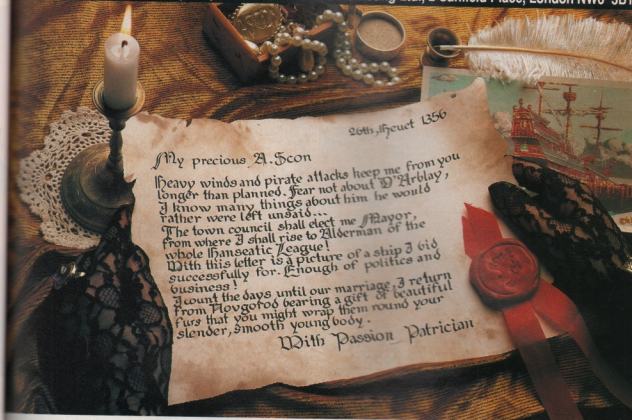 Place, London NW6
26th, Heuet 1356
My precious A. Scon
Heavy winds and pirate attacks keep me from you
longer than planned. Fear not about D'Arblay,
I know many things about him he would
rather were left unsaid...
The town council shall elect me Mayor,
from where I shall rise to Alderman of the
whole Hanseatic League!
With this letter is a picture of a ship I bid
successfully for. Enough of politics and
business!
I count the days until our marriage, I return
from Novgorod bearing a gift of beautiful
furs that you might wrap them round your
slender, smooth young body.
With Passion Patrician